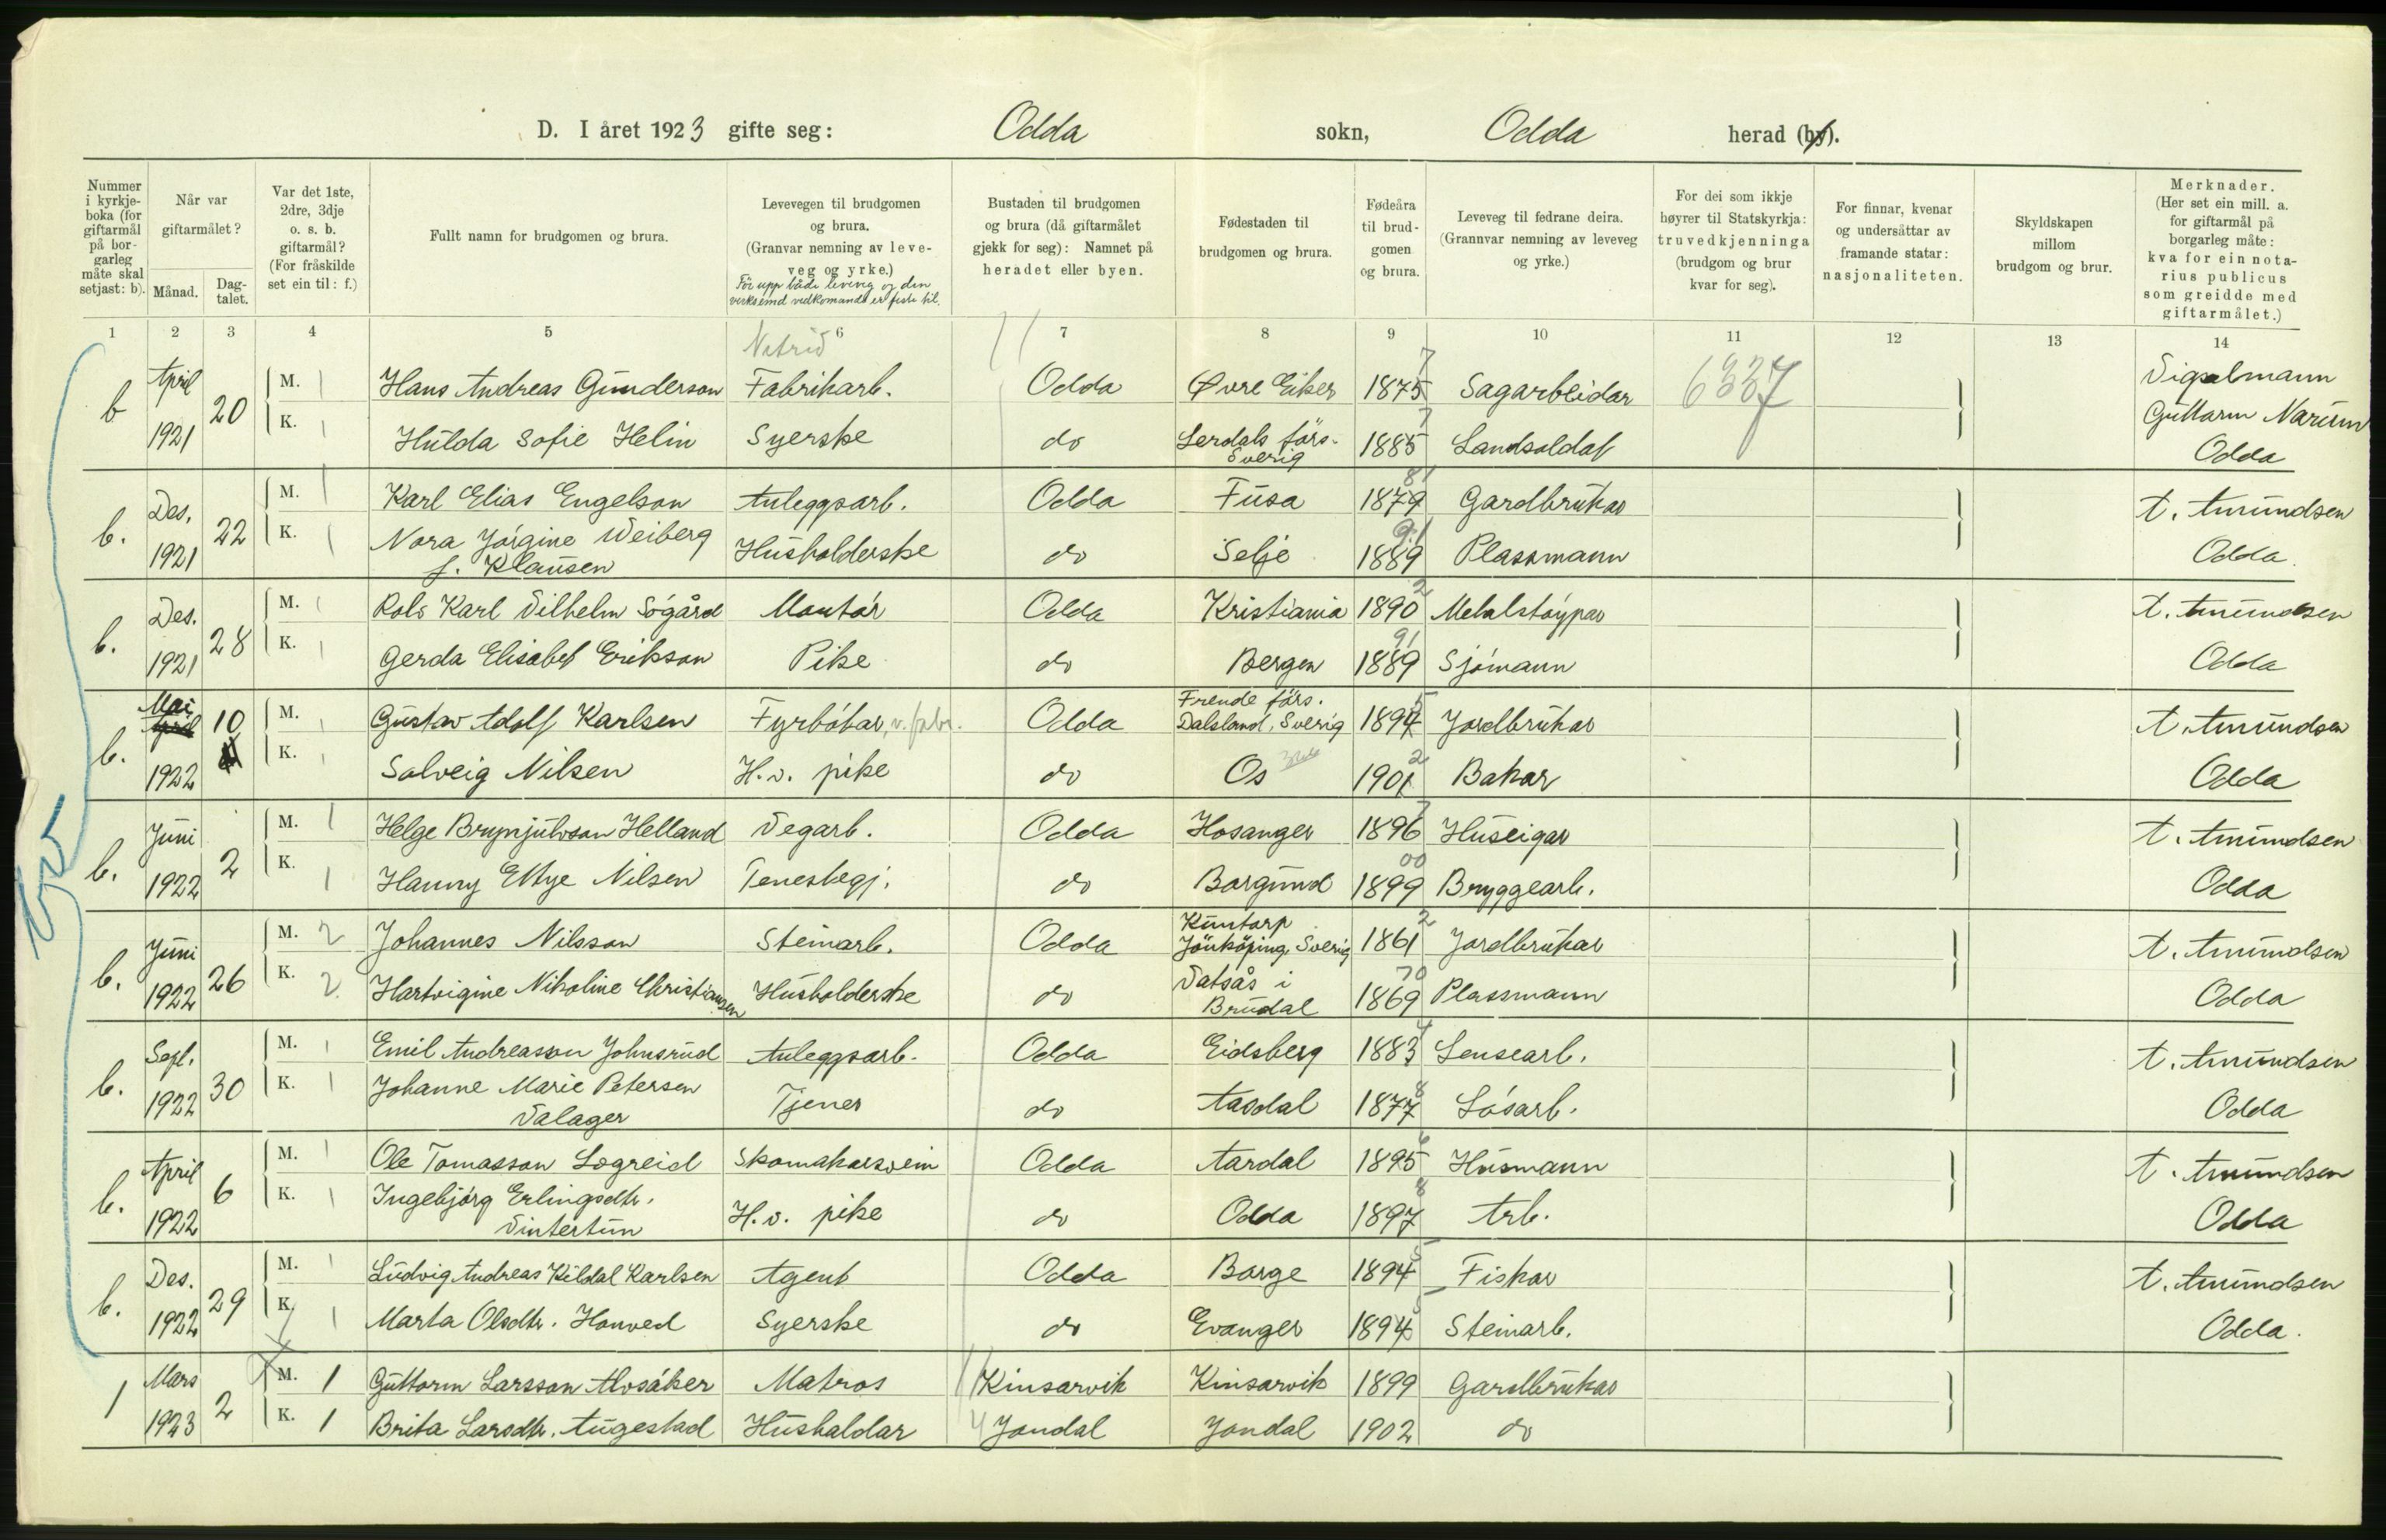 D. I året 1923 gifte seg: Odda sokn, Odda herad (by).
Nummer i kyrkjeboka (for giftarmål på borgarleg måte skal setjast: b).
Når var giftarmålet?
Månad.
Dagtalet.
Var det 1ste, 2dre, 3dje o. s. b. giftarmål? (For fråskilde set ein til: f.)
Fullt namn for brudgomen og brura.
Levevegen til brudgomen og brura. (Granvar nemning av leveveg og yrke.)
För upp både leveveg og den verksemd vedkomande er feste til.
Bustaden til brudgomen og brura (då giftarmålet gjekk for seg): Namnet på heradet eller byen.
Fødestaden til brudgomen og brura.
Fødeåra til brudgomen og brura.
Leveveg til fedrane deira. (Grannvar nemning av leveveg og yrke.)
For dei som ikkje høyrer til Statskyrkja: truvedkjenninga (brudgom og brur kvar for seg).
For finnar, kvenar og undersåttar av framande statar: nasjonaliteten.
Skyldskapen millom brudgom og brur.
Merknader. (Her set ein mill. a. for giftarmål på borgarleg måte: kva for ein notarius publicus som greidde med giftarmålet.)
1 2 3 4 5 6 7 8 9 10 11 12 13 14
b April 1921 20
M. 1 Hans Andreas Gunderson Fabrikarb. Odda Øvre Eiker 1875 7 Sagarbeidar 6337 Sigvalmann
K. 1 Hulda Sofie Helin Syerske do Lerdals förs. Sverig 1885 7 Landsoldat Guttorm Narum Odda
b. Des. 1921 22
M. 1 Karl Elias Engelson Anleggsarb. Odda Fusa 1879 81 Gardbrukar A. Amundsen
K. 1 Nora Jörgine Weiberg f. Klausen Husholderske do Selje 1889 91 Plassmann Odda.
b. Des. 1921 28
M. 1 Rolv Karl Vilhelm Sögård Montör Odda Kristiania 1890 2 Metalstöypar A. Amundsen
K. 1 Gerda Elisabet Erikson Pike do Bergen 1889 91 Sjömann Odda
b. Mai April 1922 10
M. 1 Gustav Adolf Karlsen Fyrböter, v. fabr. Odda Frende förs. Dalsland, Sverig 1894 5 Jordbrukar A. Amundsen
K. 1 Solveig Nilsen H.v. pike do Os 1901 2 Bakar Odda
b. Juni 1922 2
M. 1 Helge Brynjulvson Helland Vegarb. Odda Hosanger 1896 7 Huseigar A. Amundsen
K. 1 Hanny Ettye Nilsen Tenestegj. do Borgund 1899 00 Bryggearb. Odda
b. Juni 1922 26
M. 2 Johannes Nilsson Steinarb. Odda Kuntorp Jönköping, Sverig 1861 2 Jordbrukar A. Amundsen
K. 2 Hartvigine Nikoline Christiansen Husholderske do Vatsås i Brudal 1869 70 Plassmann Odda
b. Sept. 1922 30
M. 1 Emil Andreasson Johnsrud Anleggsarb. Odda Eidsberg 1883 4 Lensearb. A. Amundsen
K. 1 Johanne Marie Petersen Valager Tjener do Aasdal 1877 8 Lösarb. Odda
b. April 1922 6
M. 1 Ole Tomasson Logreid Skomakarsvein Odda Aardal 1895 6 Husmann A. Amundsen
K. 1 Ingebjörg Erlingsdtr. Vintertun H.v. pike do Odda 1897 8 Arb. Odda
b. Des. 1922 29
M. 1 Ludvig Andreas Kildal Karlsen Agent Odda Borge 1894 5 Fiskar A. Amundsen
K. 1 Marta Olsdtr. Honved Syerske do Evanger 1894 5 Steinarb. Odda.
1 Mars 1923 2
M. 1 Guttorm Larsson Alvsåker Matros Kinsarvik Kinsarvik 1899 Gardbrukar
K. 1 Brita Larsdtr. Augestad Hushaldar Jondal Jondal 1902 do